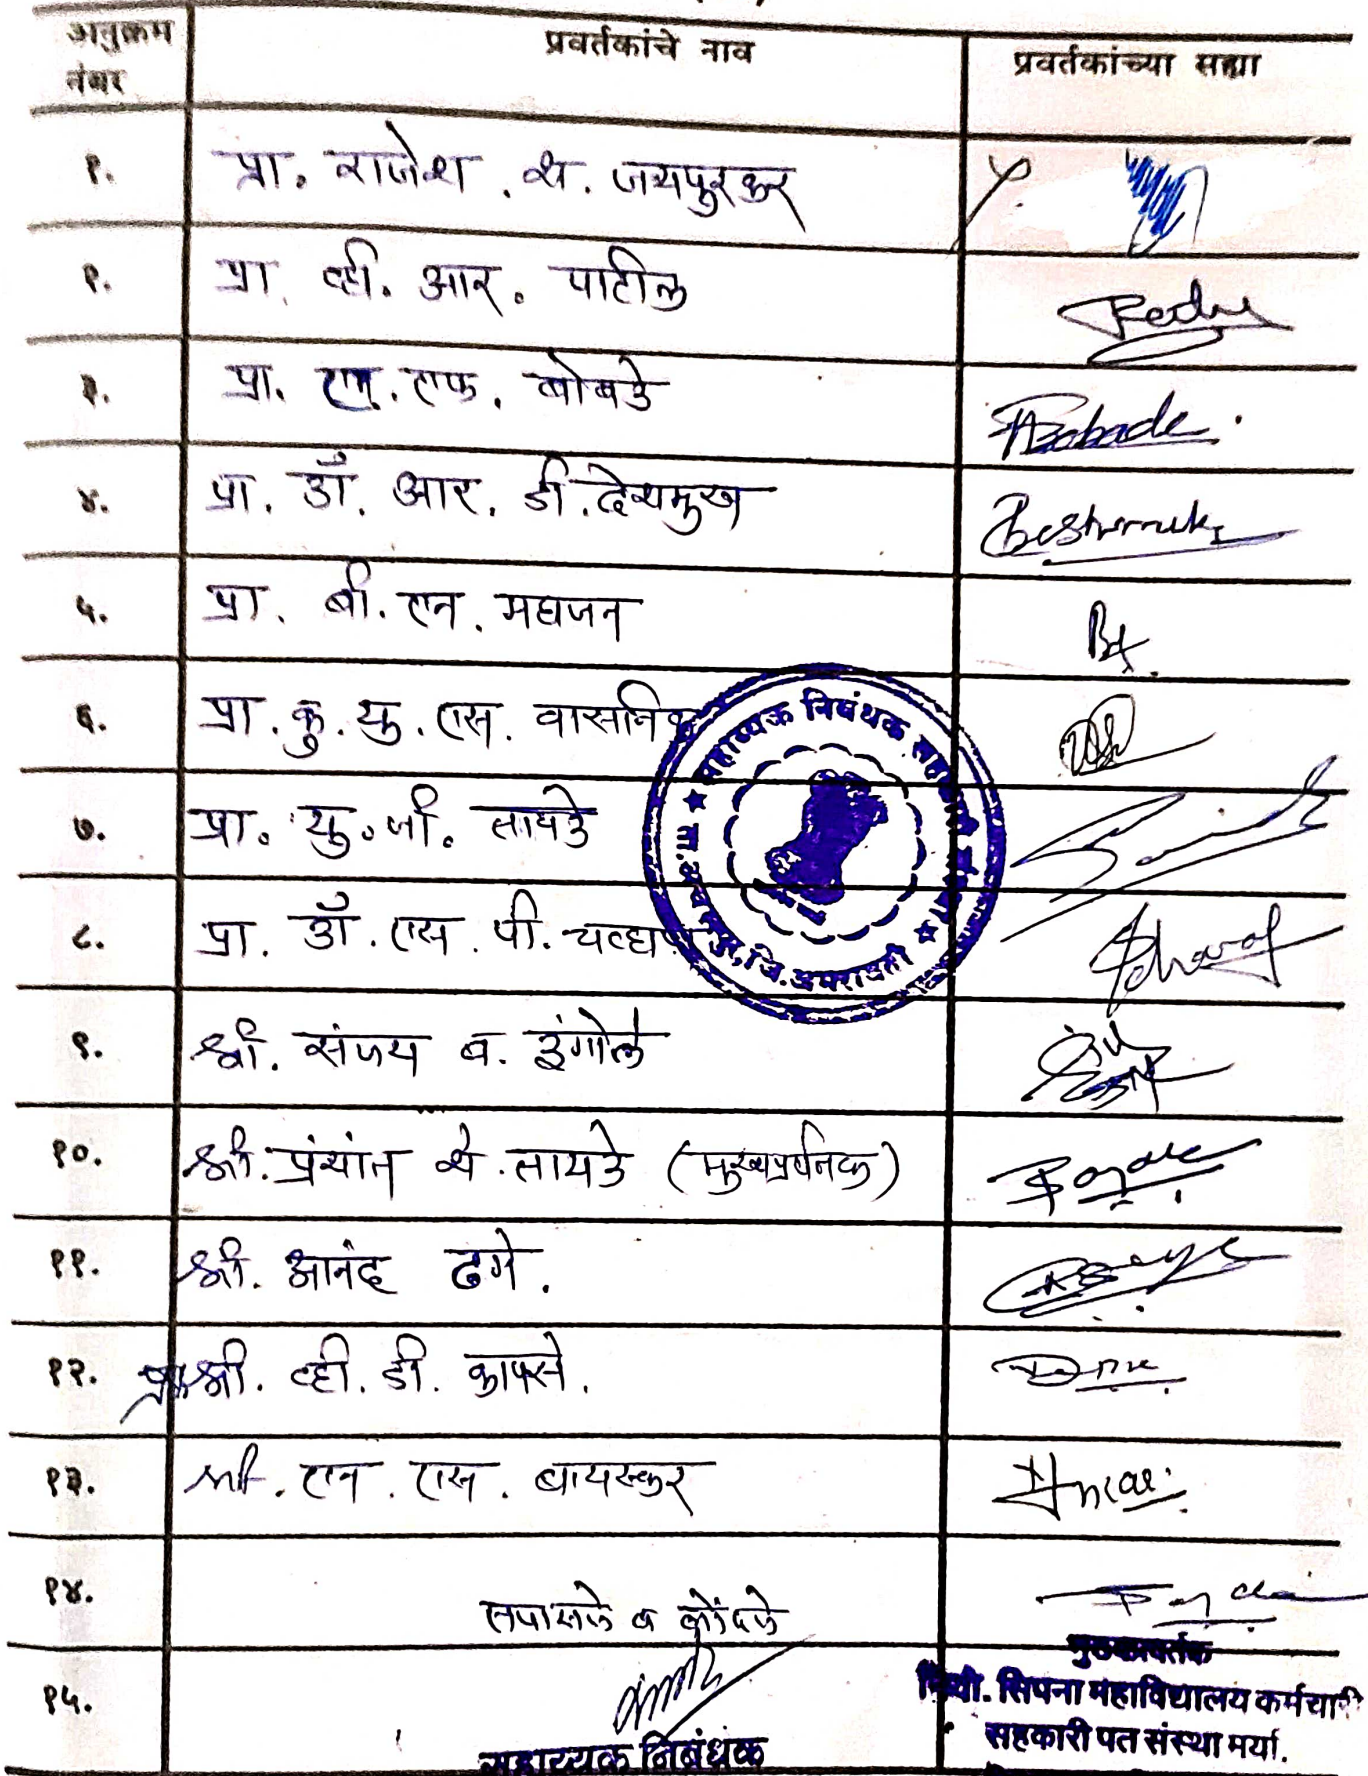 अनुक्रम नंबर प्रवर्तकांचे नाव प्रवर्तकांच्या सह्या
१. प्रा. राजेश . श. जयपुरकर
२. प्रा. व्ही. आर. पाटील
३. प्रा. एम. एफ. बोबडे Bobade
४. प्रा. डॉ. आर. डी. देशमुख Deshmukh
५. प्रा. बी. एन. महाजन
६. प्रा. कु. यु. एस. वासनिक
७. प्रा. यु. जी. तायडे
८. प्रा. डॉ. एस. पी. चव्हाण
सहाय्यक निबंधक सहकारी संस्था
जि. अमरावती
९. श्री. संजय ब. इंगोले
१०. श्री. प्रशांत श. तायडे (मुख्यप्रवर्तक)
११. श्री. आनंद ढगे.
१२. प्रा श्री. व्ही. डी. कापसे.
१३. श्री. एन. एस. बायस्कर
१४. तपासले व नोंदले
मुख्यप्रवर्तक
१५. नियो. सिपना महाविद्यालय कर्मचारी
सहकारी पत संस्था मर्या.
सहाय्यक निबंधक